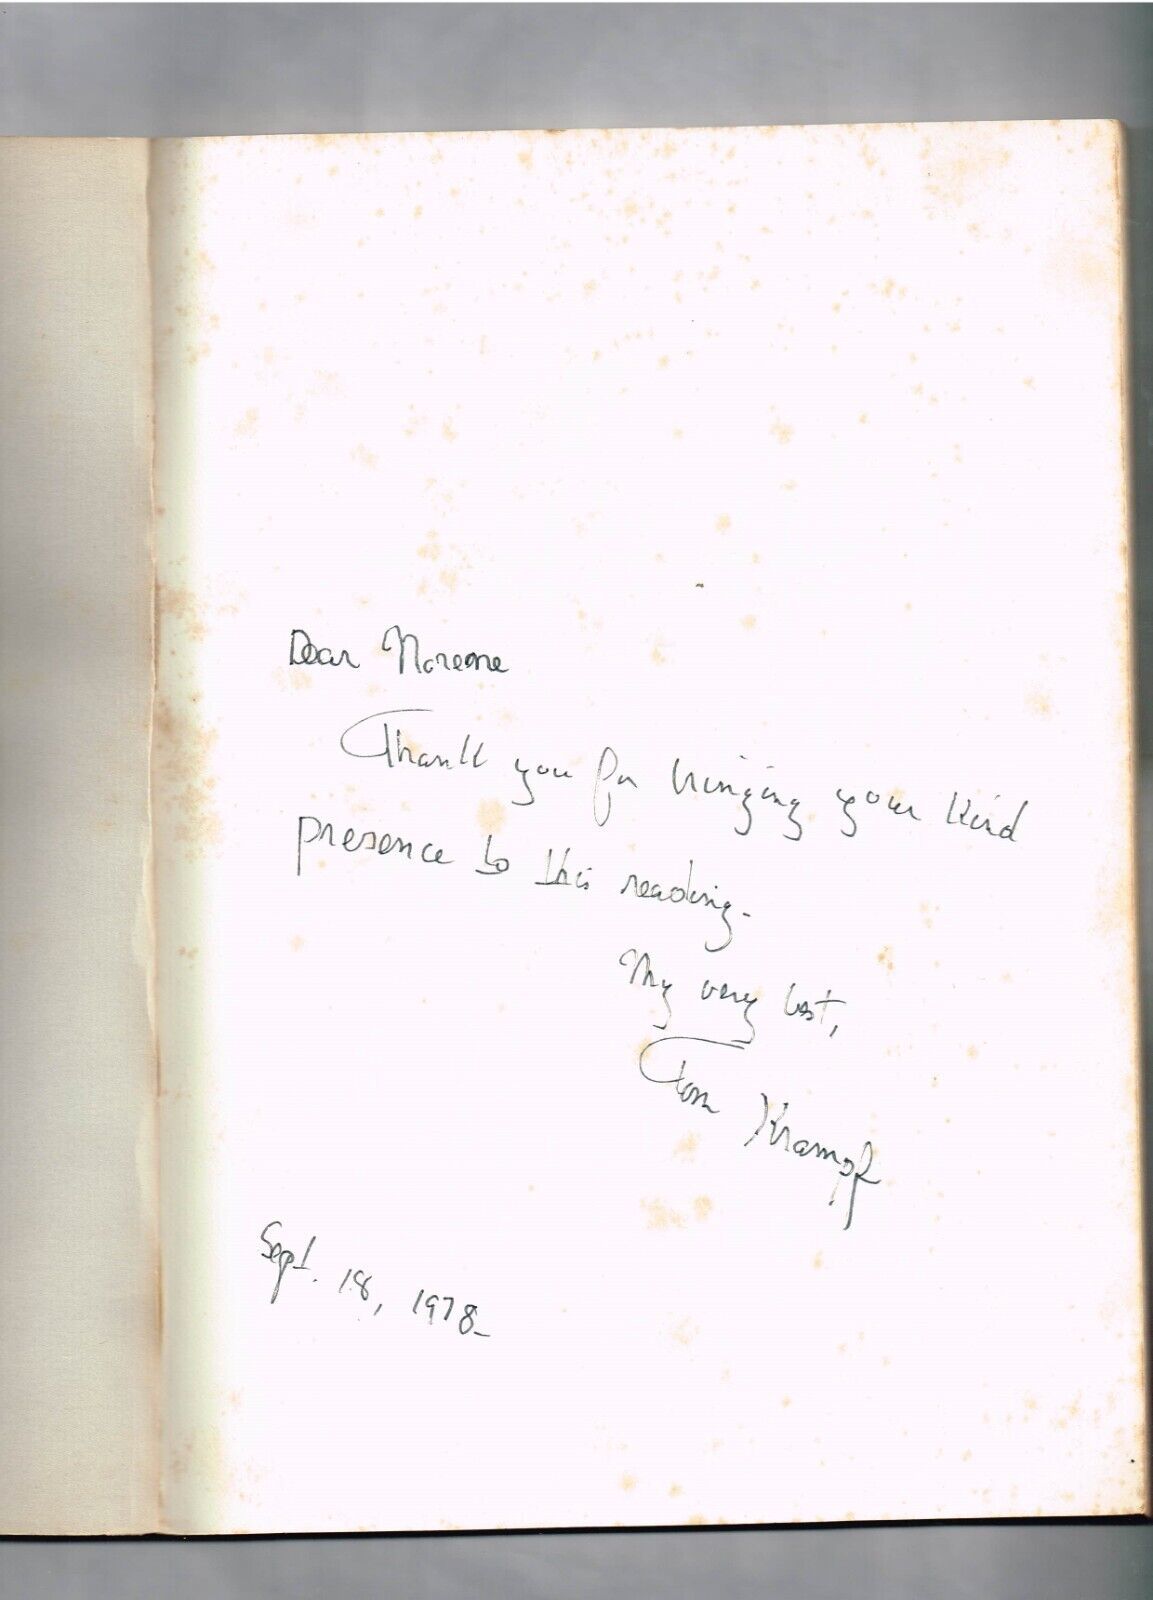 Dear Noreene
Thank you for bringing your kind
presence to this reading.
My very best,
Tom Krampf
Sept. 18, 1978